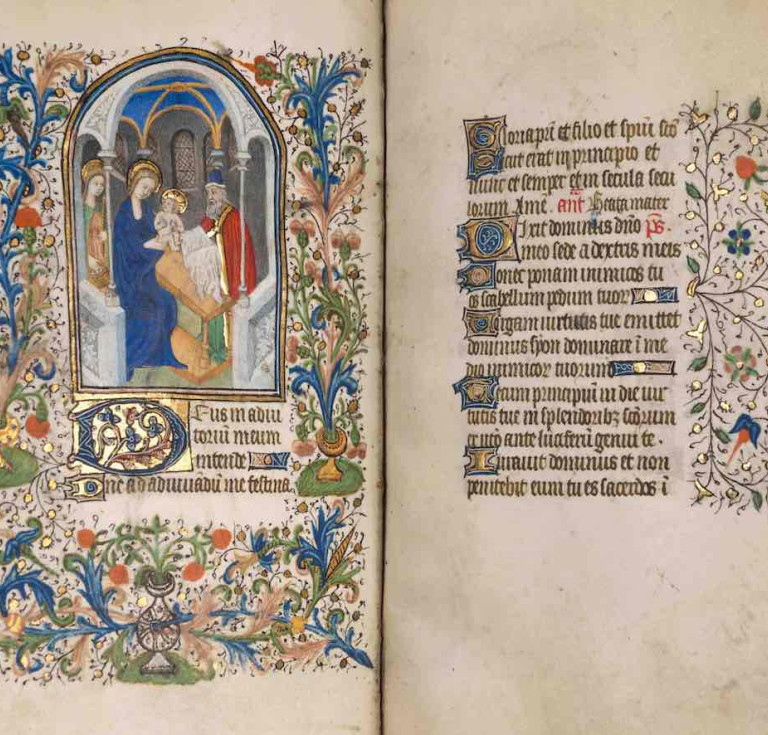 Deus in adiu
toriū meum
intende
Dñe ad adiuuādū me festina
Gloria pr̄i et filio et spiri sc̄o
Sicut erat in principio et
nunc et semper et in secula secu
lorum Amē. añt Beata mater
Dixit dominus dño ps̄.
meo sede a dextris meis
Donec ponam inimicos tu
os scabellum pedum tuor
Uirgam uirtutis tue emittet
dominus syon dominare ī me
dio inimicor tuorum
Tecum principiū in die uir
tutis tue in splendoribꝫ sc̄orum
ex utero ante luciferū genui te.
Iurauit dominus et non
penitebit eum tu es sacerdos ī